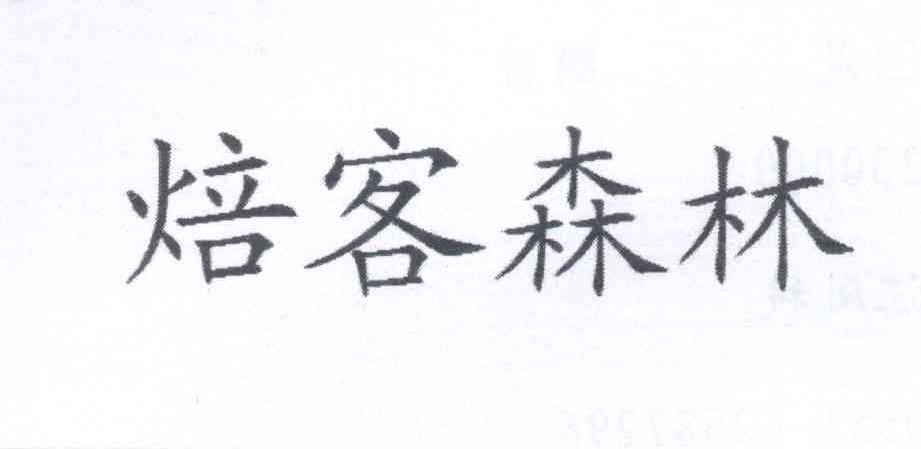 焙客森林